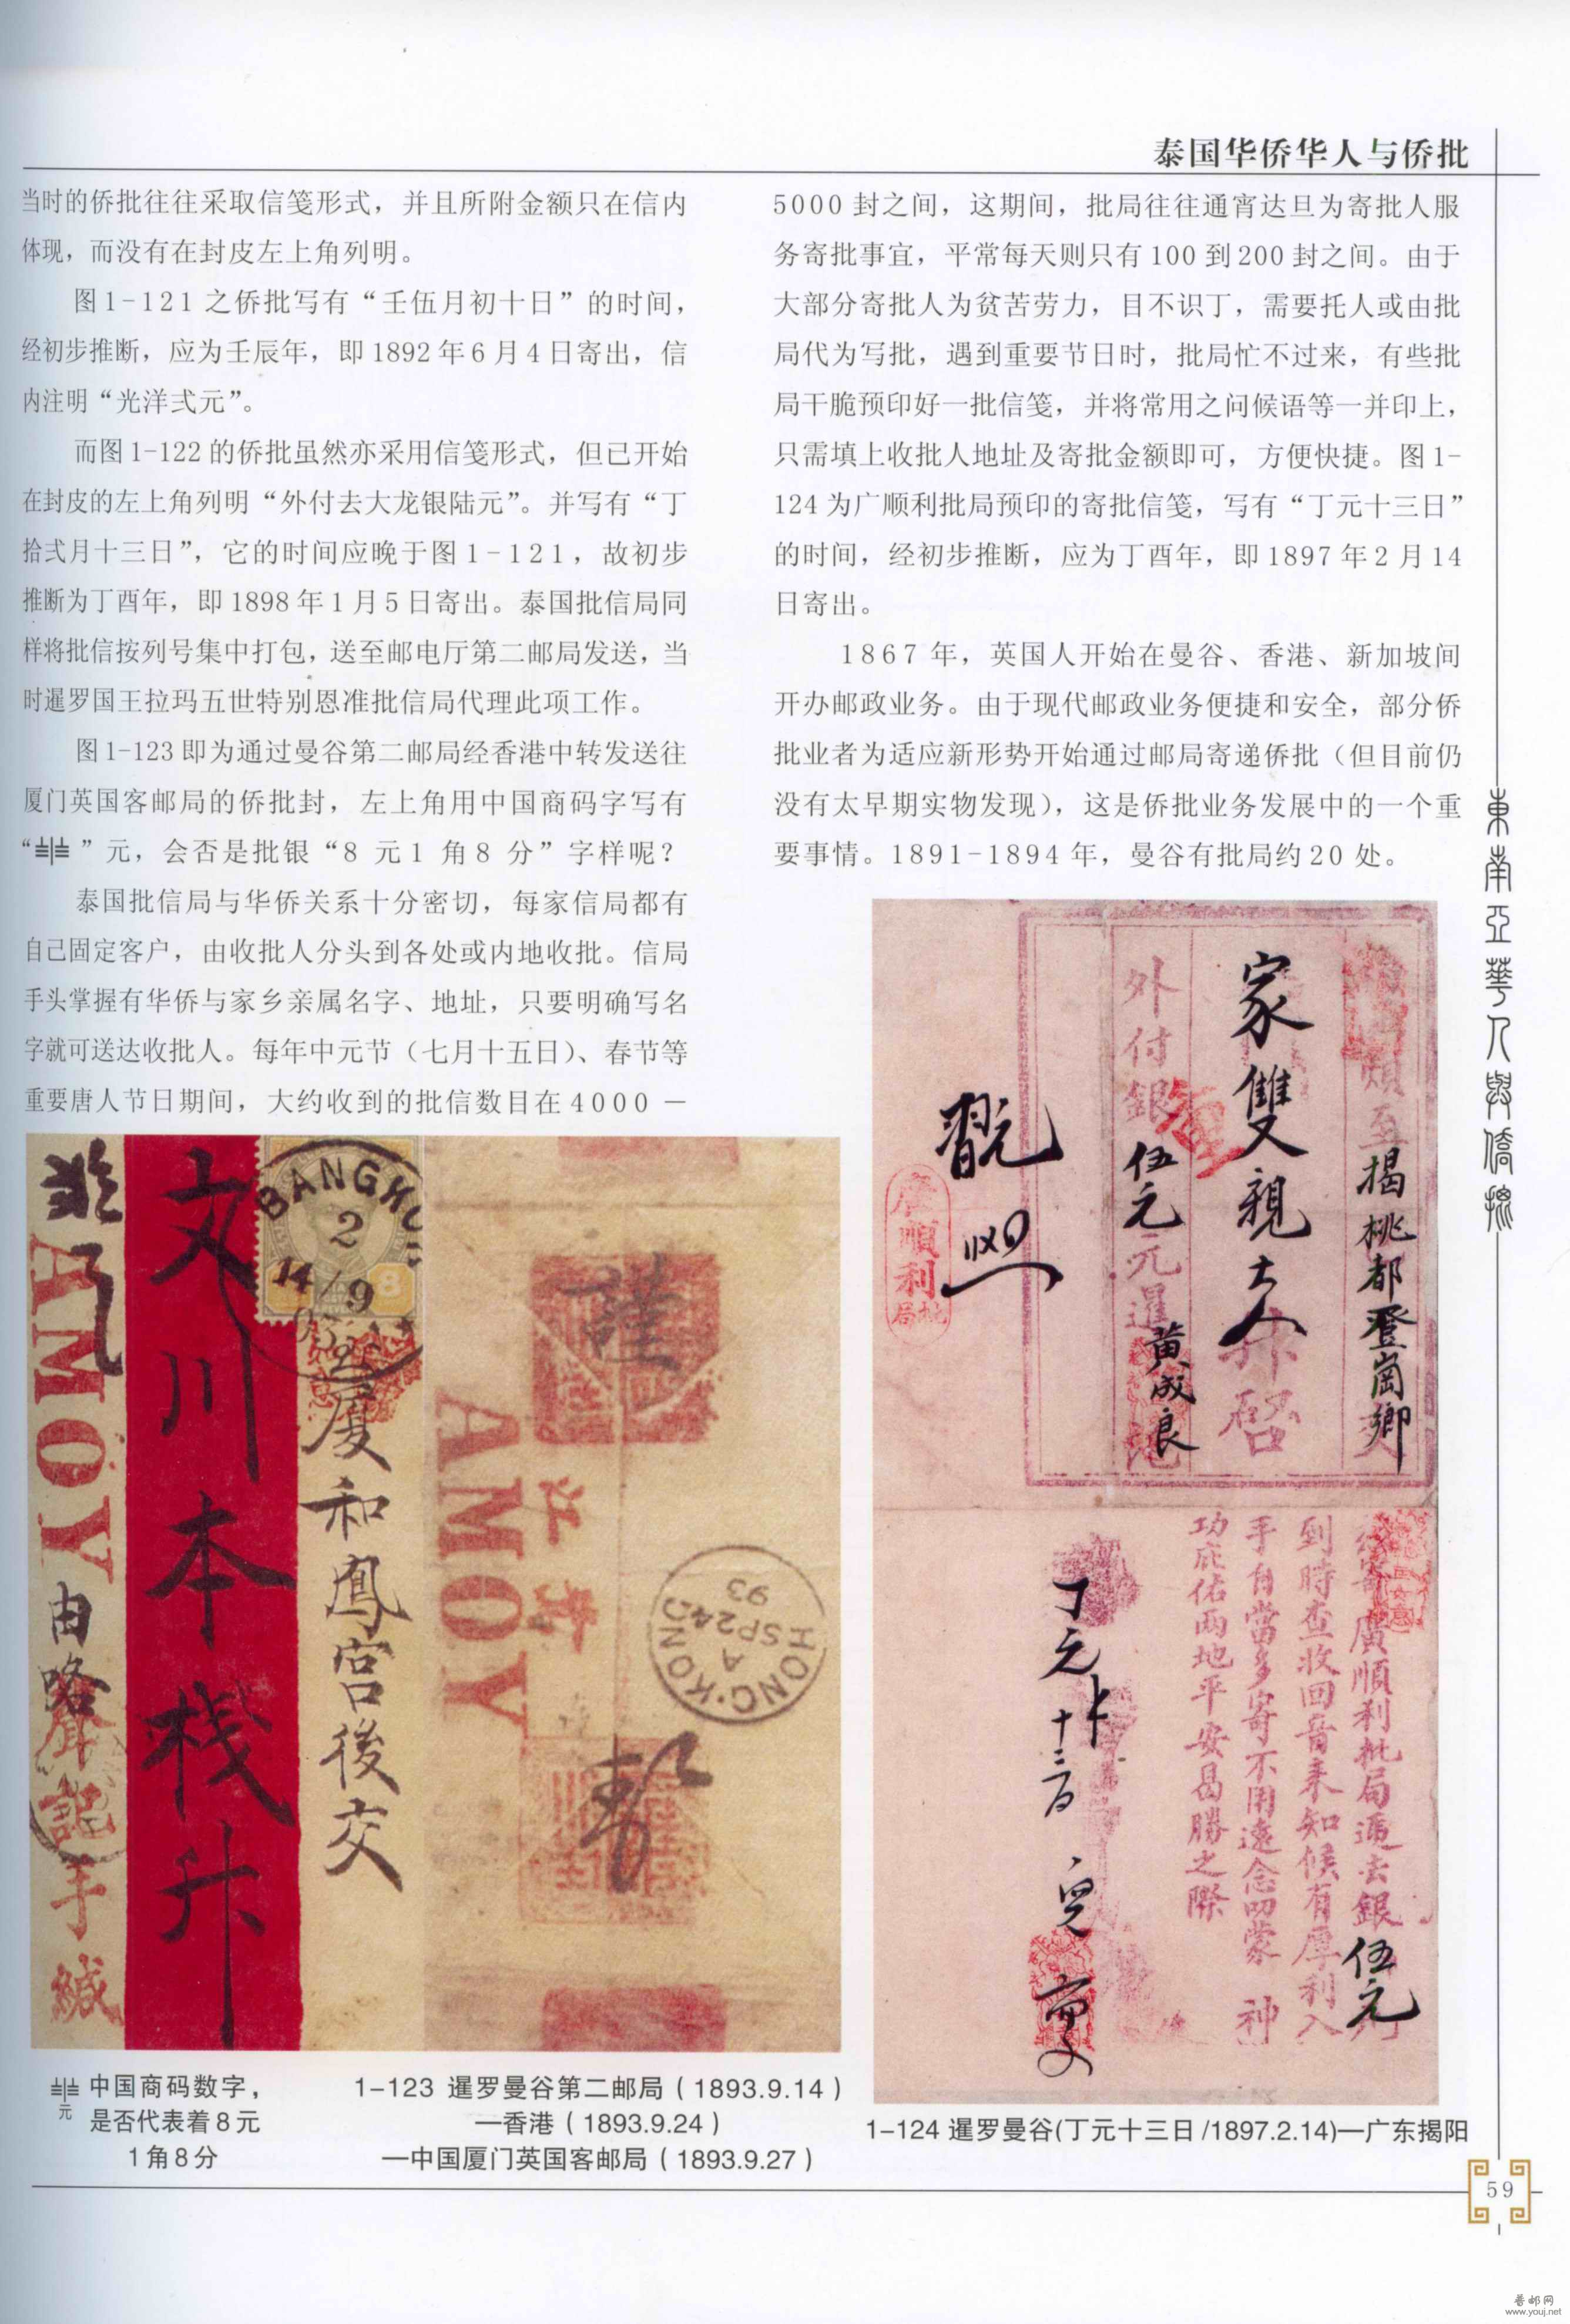 泰国华侨华人与侨批
当时的侨批往往采取信笺形式，并且所附金额只在信内
体现，而没有在封皮左上角列明。
图1-121 之侨批写有“壬伍月初十日”的时间，
经初步推断，应为壬辰年，即1892年6月4日寄出，信
内注明“光洋弍元”。
而图1-122的侨批虽然亦采用信笺形式，但已开始
在封皮的左上角列明“外付去大龙银陆元”。并写有“丁
拾弍月十三日”，它的时间应晚于图1-121，故初步
推断为丁酉年，即1898年1月5日寄出。泰国批信局同
样将批信按列号集中打包，送至邮电厅第二邮局发送，当
时暹罗国王拉玛五世特别恩准批信局代理此项工作。
图1-123即为通过曼谷第二邮局经香港中转发送往
厦门英国客邮局的侨批封，左上角用中国商码字写有
“〨〡〨”元，会否是批银“8 元1 角8 分”字样呢？
泰国批信局与华侨关系十分密切，每家信局都有
自己固定客户，由收批人分头到各处或内地收批。信局
手头掌握有华侨与家乡亲属名字、地址，只要明确写名
字就可送达收批人。每年中元节（七月十五日）、春节等
重要唐人节日期间，大约收到的批信数目在4000－
5000封之间，这期间，批局往往通宵达旦为寄批人服
务寄批事宜，平常每天则只有100到200封之间。由于
大部分寄批人为贫苦劳力，目不识丁，需要托人或由批
局代为写批，遇到重要节日时，批局忙不过来，有些批
局干脆预印好一批信笺，并将常用之问候语等一并印上，
只需填上收批人地址及寄批金额即可，方便快捷。图1-
124为广顺利批局预印的寄批信笺，写有“丁元十三日”
的时间，经初步推断，应为丁酉年，即1897年2月14
日寄出。
1867年，英国人开始在曼谷、香港、新加坡间
开办邮政业务。由于现代邮政业务便捷和安全，部分侨
批业者为适应新形势开始通过邮局寄递侨批（但目前仍
没有太早期实物发现），这是侨批业务发展中的一个重
要事情。1891-1894年，曼谷有批局约20处。
東南亞華人與僑批
AMOY
由
聲記手緘
文川本棧升
BANGKO
2
14/9
8
厦和鳳宮後交
謹
AMOY
HONG-KONG
A
SP24
93
揭桃都登崗鄉
家雙親大人
升啓
外付銀伍元元暹
黄成良
廣順利
批局
廣順利批局遞去銀伍元
到時查收回音来知候有厚利入
手自當多寄不用遠念叨蒙 神
功庇佑兩地平安曷勝之際
丁元十三
兒
〨〡〨元 中国商码数字，
是否代表着8元
1角8分
1-123 暹罗曼谷第二邮局（1893.9.14）
—香港（1893.9.24）
—中国厦门英国客邮局（1893.9.27）
1-124 暹罗曼谷(丁元十三日/1897.2.14)—广东揭阳
59
普邮网
www.youj.net